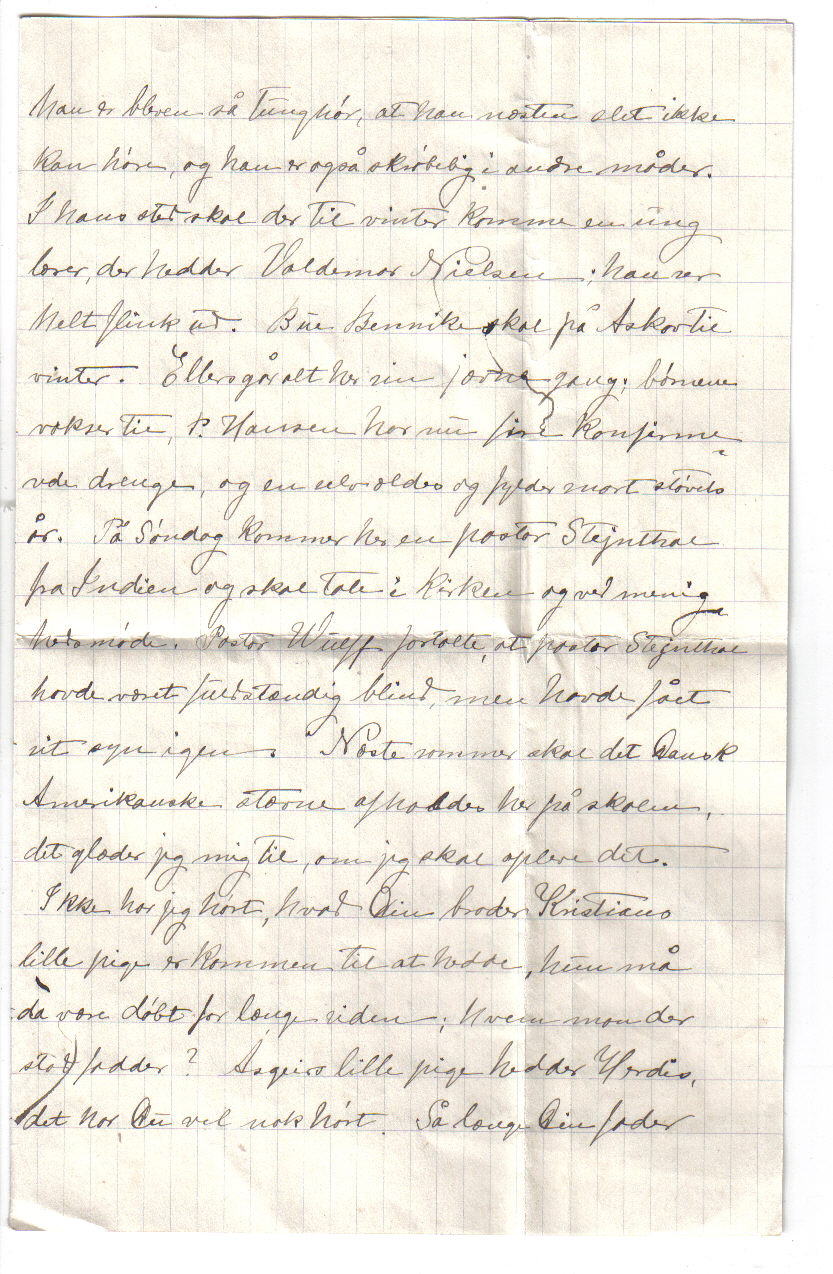 han er bleven så tunghør, at han næsten slet ikke
kan høre, og han er også skrøbelig i andre måder.
I hans sted skal der til vinter komme en ung
lærer, der hedder Valdemar Nielsen; han ser
helt flink ud. Bue Bennike skal på Askov til
vinter. Ellers går alt her sin jævne gang; børnene
vokser til, P. Hansen har nu fire konfirme-
rede drenge, og en selv ældes og fylder snart støvets
år. På Søndag kommer her en pastor Stejnthal
fra Indien og skal tale i Kirken og ved menig-
hedsmøde. Pastor Wulff fortalte, at pastor Stejnthal
havde været fuldstændig blind, men havde fået
sit syn igen. Næste sommer skal det Dansk
Amerikanske stævne afholdes her på skolen,
det glæder jeg mig til, om jeg skal opleve det.
Ikke har jeg hørt, hvad Din broder Kristians
lille pige er kommen til at hedde, hun må
da være døbt for længe siden; hvem mon der
stod fadder? Asgeirs lille pige hedder Herdis,
det har Du vel nok hørt. Så længe Din fader